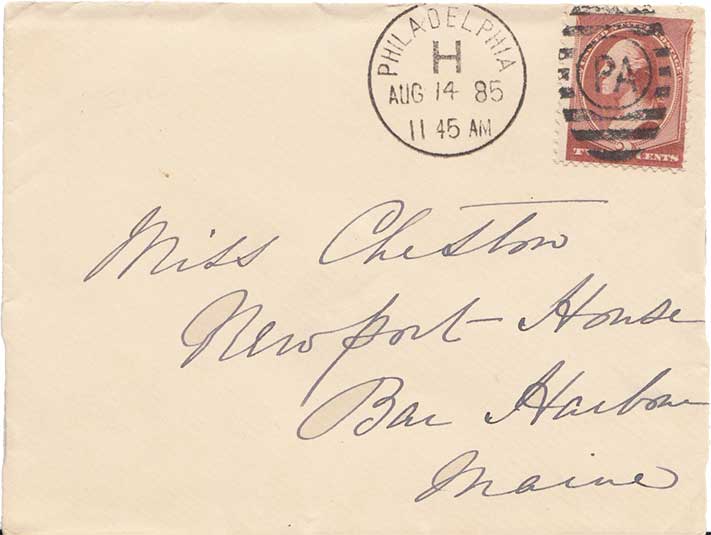 PHILADELPHIA
H
AUG 14 85
11 45 AM
PA
CENTS
Miss Cheston
Newport House
Bar Harbour
Maine